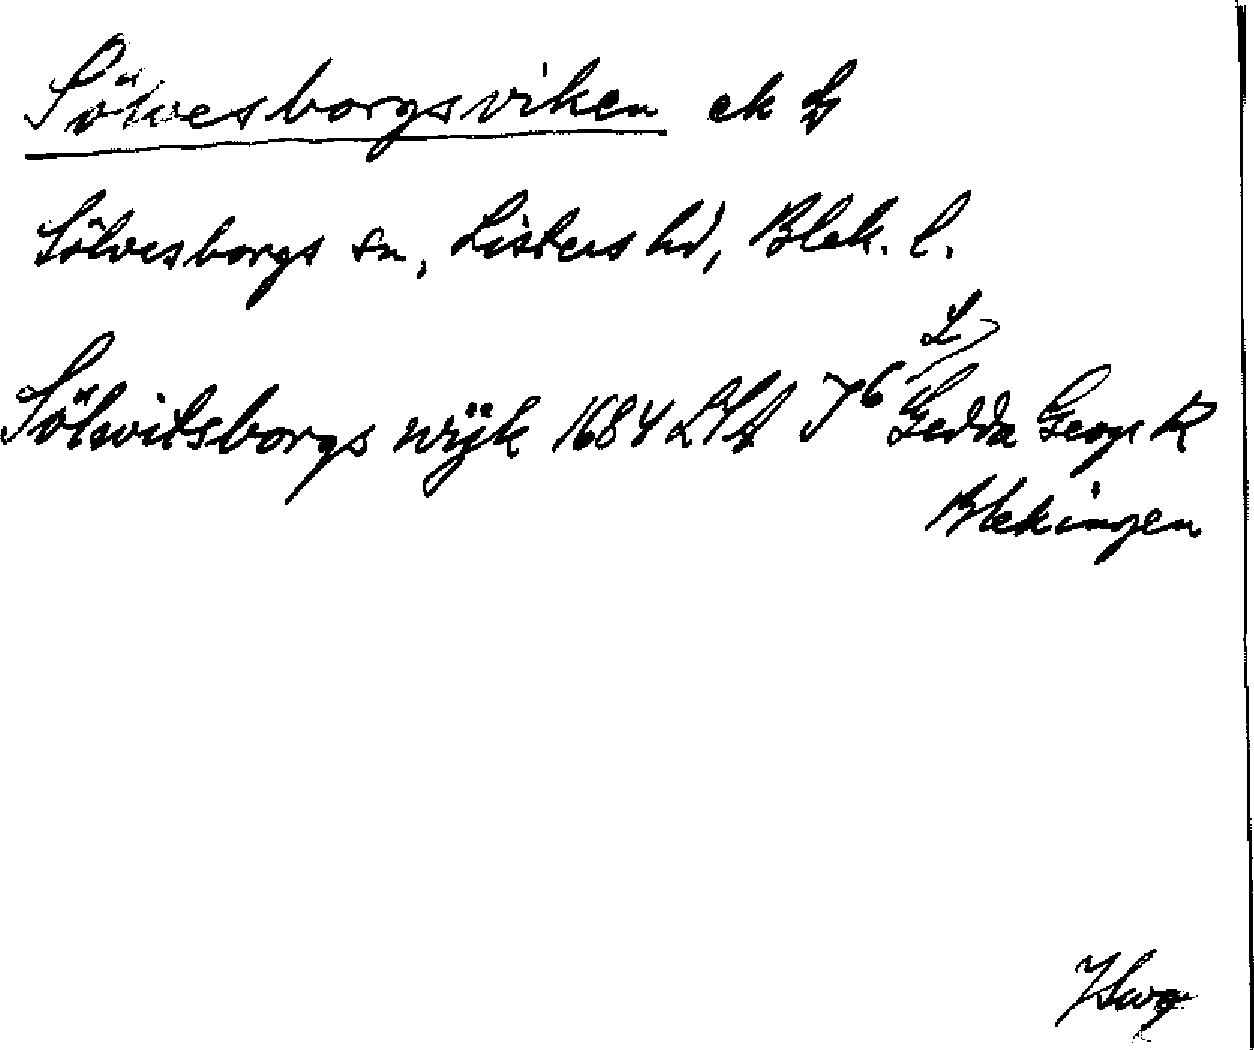 Sölvesborgsviken ek
Sölvesborgs sn, Listers hd, Blek. l.
L
Sölwitsborgs wijk 1684 J6 Gedda Geogr K
Blekingen